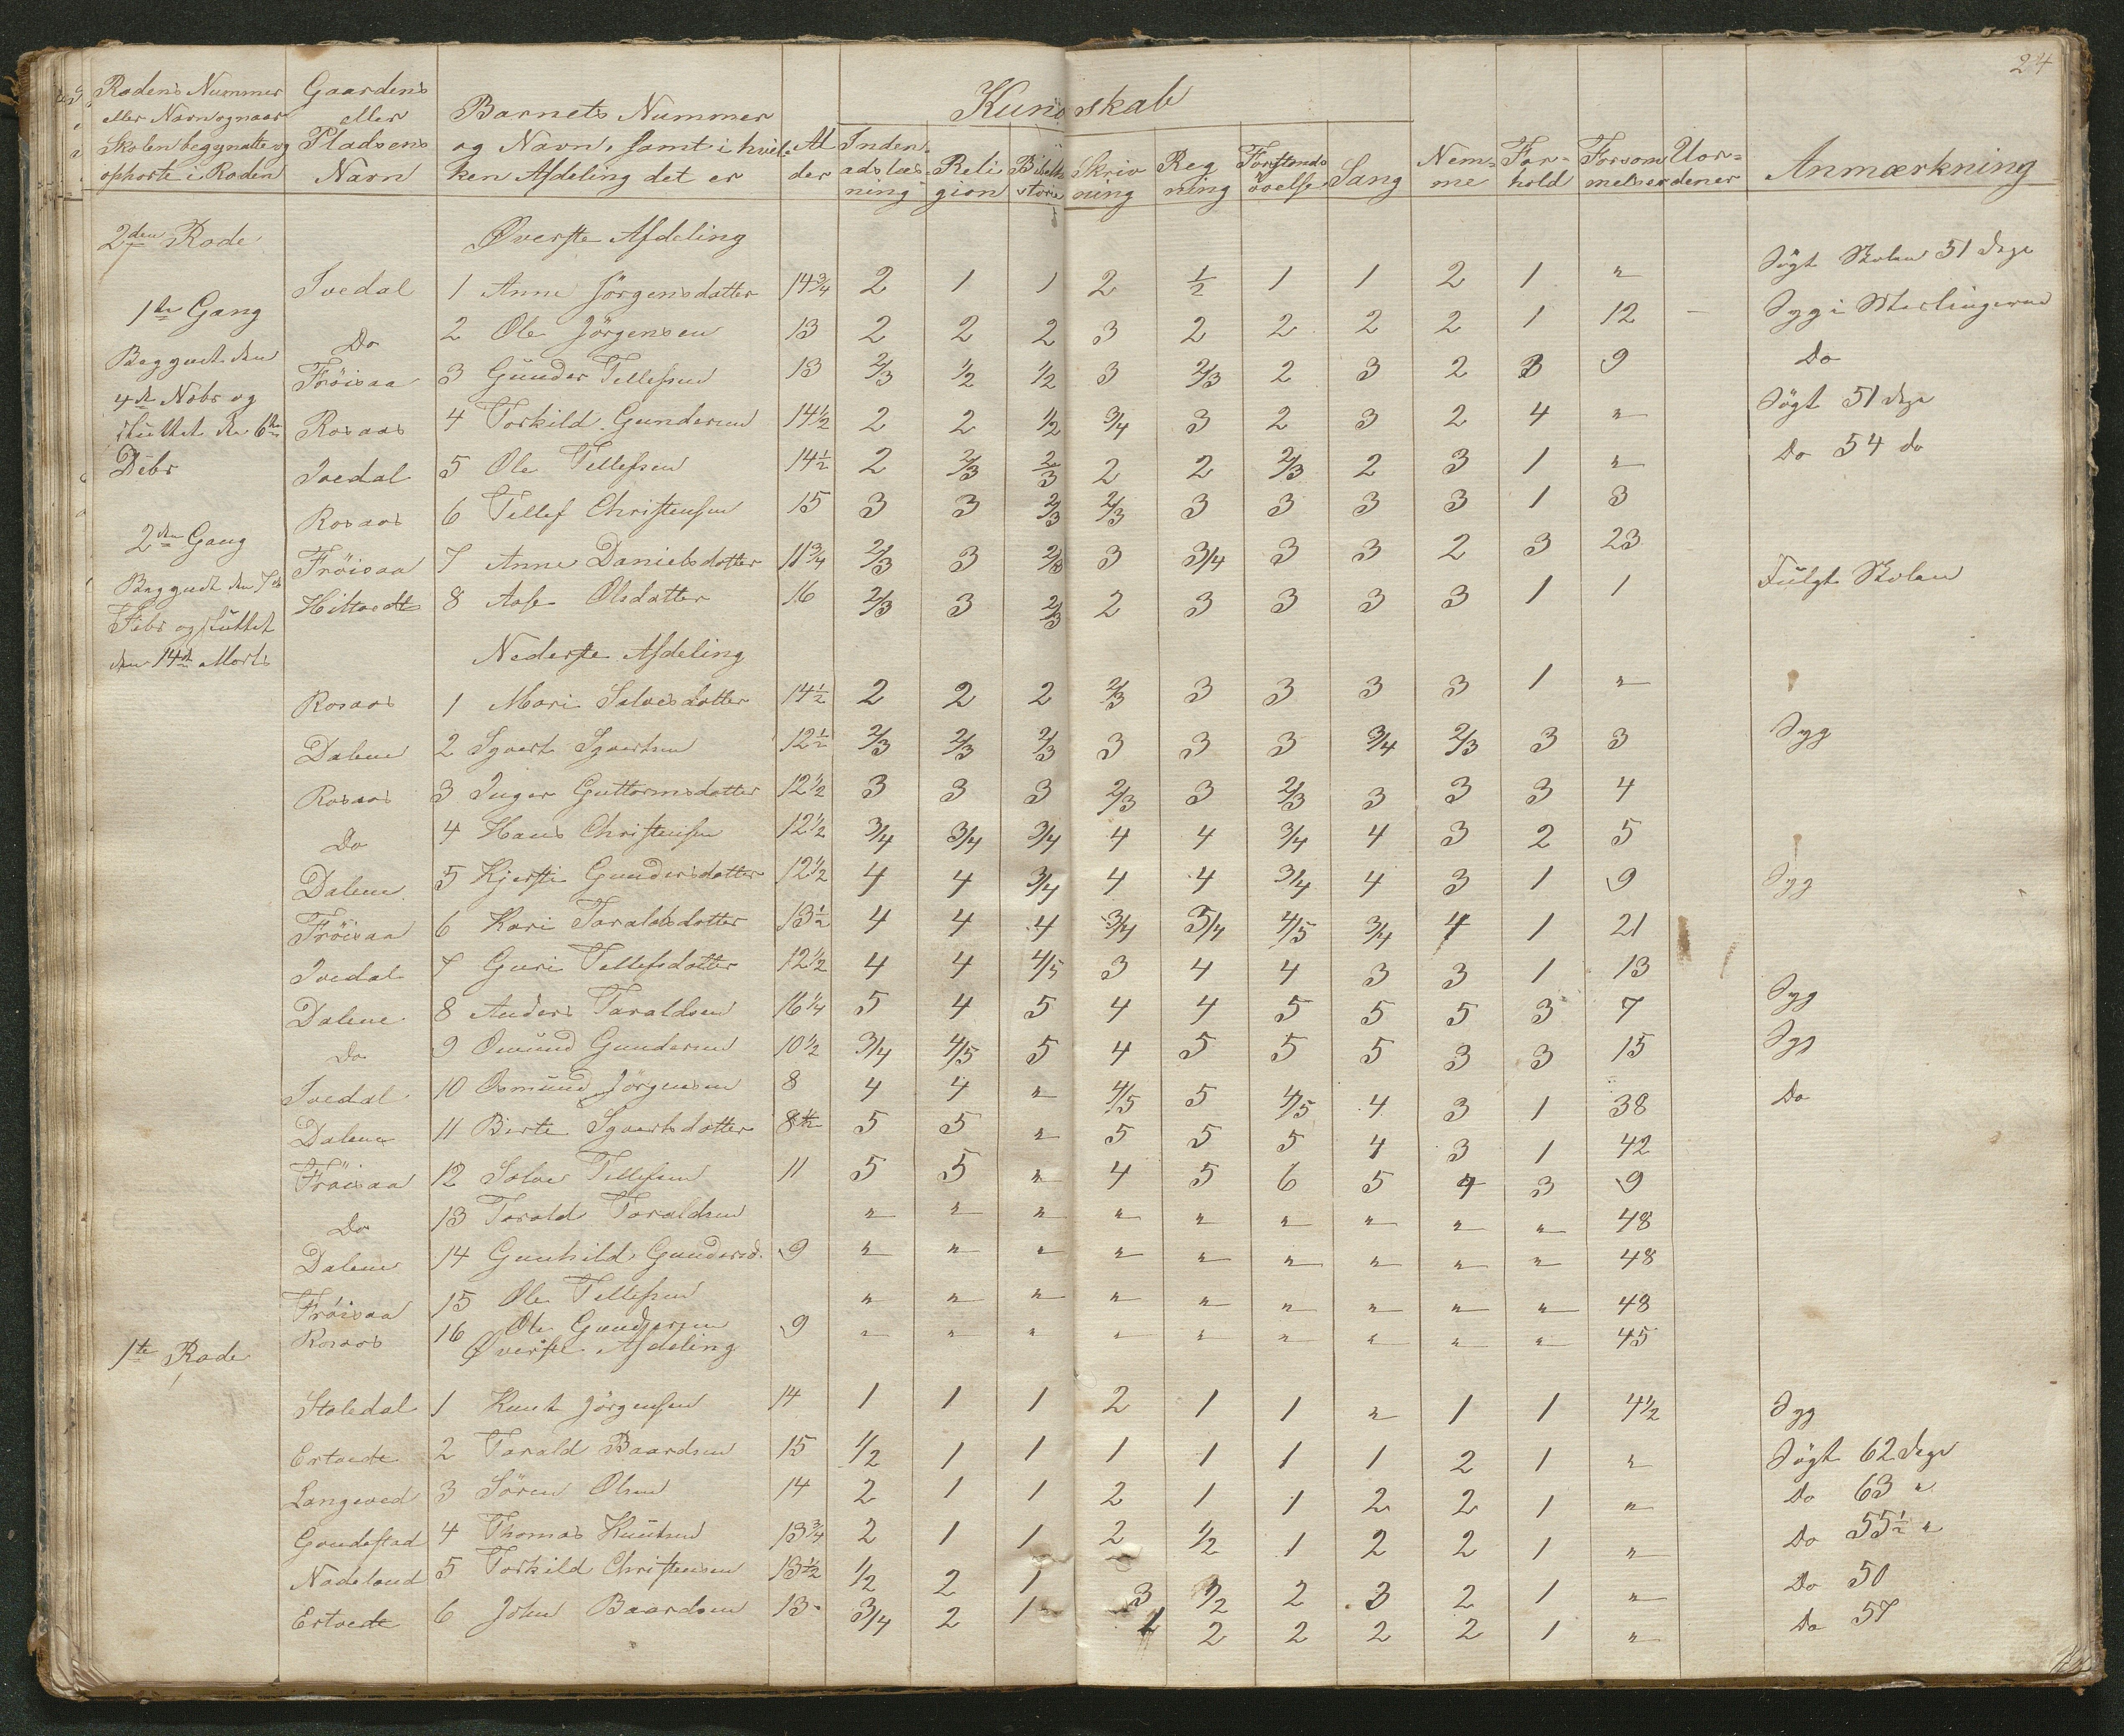 24
Rodens Nummer eller Navn og naar Skolen begyndte og ophørte i Roden | Gaardens eller Pladsens Navn | Barnets Nummer og Navn, samt i hvilken Afdeling det er | Alder | Kundskab | Nemme | Forhold | Forsommelser | Anmærkning
Indenadslæsning | Religion | Skrivning | Regning | Forstandsøvelse | Sang
2den Rode | Øverste Afdeling
1te Gang
Begyndt den
4de Nobr og
sluttet den 6te
Debr
2den Gang
Begyndt den 7de
Febr og sluttet
den 14de Marts
Ivedal 1 Anne Jörgensdatter 14 3/4 2 1 1 2 1/2 1 1 2 1 " Sögt Skolen 51 dage
Do 2 Ole Jörgensen 13 2 2 2 3 2 2 2 2 1 12 - Syg i Meslingerne
Fröisaa 3 Gunder Tellefsen 13 2/3 1/2 1/2 3 2/3 2 3 2 3 9 Do
Rosaas 4 Torkild Gundersen 14 1/2 2 2 1/2 3/4 3 2 3 2 4 " Sögt 51 dage
Ivedal 5 Ole Tellefsen 14 1/2 2 2/3 2/3 2 2 2/3 2 3 1 " Do 54 do
Rosaas 6 Tellef Christensen 15 3 3 2/3 2/3 3 3 3 3 1 3
Fröisaa 7 Anne Danielsdatter 11 3/4 2/3 3 2/3 3 3/4 3 3 2 3 23
8 Aase Olsdatter 16 2/3 3 2/3 2 3 3 3 3 1 1 Fulgt Skolen
Nederste Afdeling
Rosaas 1 Mari Salvesdatter 14 1/2 2 2 2 2/3 3 3 3 3 1 "
Dalene 2 Syvert Syvertsen 12 1/2 2/3 2/3 2/3 3 3 3 3/4 2/3 3 3 Syg
Rosaas 3 Inger Guttormsdatter 12 1/2 3 3 3 2/3 3 2/3 3 3 3 4
Do 4 Hans Christensen 12 1/2 3/4 3/4 3/4 4 4 3/4 4 3 2 5
Dalene 5 Kjersti Gundersdatter 12 1/2 4 4 3/4 4 4 3/4 4 3 1 9 Syg
Fröisaa 6 Kari Taraldsdatter 13 1/2 4 4 4 3/4 3/4 4/5 3/4 4 1 21
Ivedal 7 Guri Tellefsdatter 12 1/2 4 4 4/5 3 4 4 3 3 1 13
Dalene 8 Anders Taraldsen 16 1/4 5 4 5 4 4 5 5 5 3 7 Syg
Do 9 Omund Gundersen 10 1/2 3/4 4/5 5 4 5 5 5 3 3 15 Syg
Ivedal 10 Osmund Jörgensen 8 4 4 " 4/5 5 4/5 4 3 1 38 Do
Dalene 11 Birte Syvertsdatter 8 1/2 5 5 " 5 5 5 4 3 1 42
Fröisaa 12 Salve Tellefsen 11 5 5 " 4 5 6 5 4 3 9
Do 13 Tarald Taraldsen " " " " " " " " " 48
Dalene 14 Gunhild Gundersd. 9 " " " " " " " " " 48
Fröisaa 15 Ole Tellefsen " " " " " " " " " 48
Rosaas 16 Ole Gundersen 9 " " " " " " " " " 45
1te Rode | Øverste Afdeling
Staledal 1 Knut Jörgensen 14 1 1 1 2 1 1 " 1 1 4 1/2 Syg
Ertvedt 2 Tarald Baardsen 15 1/2 1 1 1 1 1 1 2 1 " Sögt 62 dage
Langeved 3 Sören Olsen 14 2 1 1 2 1 1 2 2 1 " Do 63 "
Goudestad 4 Thomas Knutsen 13 3/4 2 1 1 2 1/2 1 2 2 1 " Do 55 1/2 "
Nadeland 5 Torkild Christensen 13 1/2 1/2 2 1 3 1/2 2 3 2 1 " Do 50
Ertvedt 6 John Baardsen 13 3/4 2 1 2 2 2 2 1 " Do 57